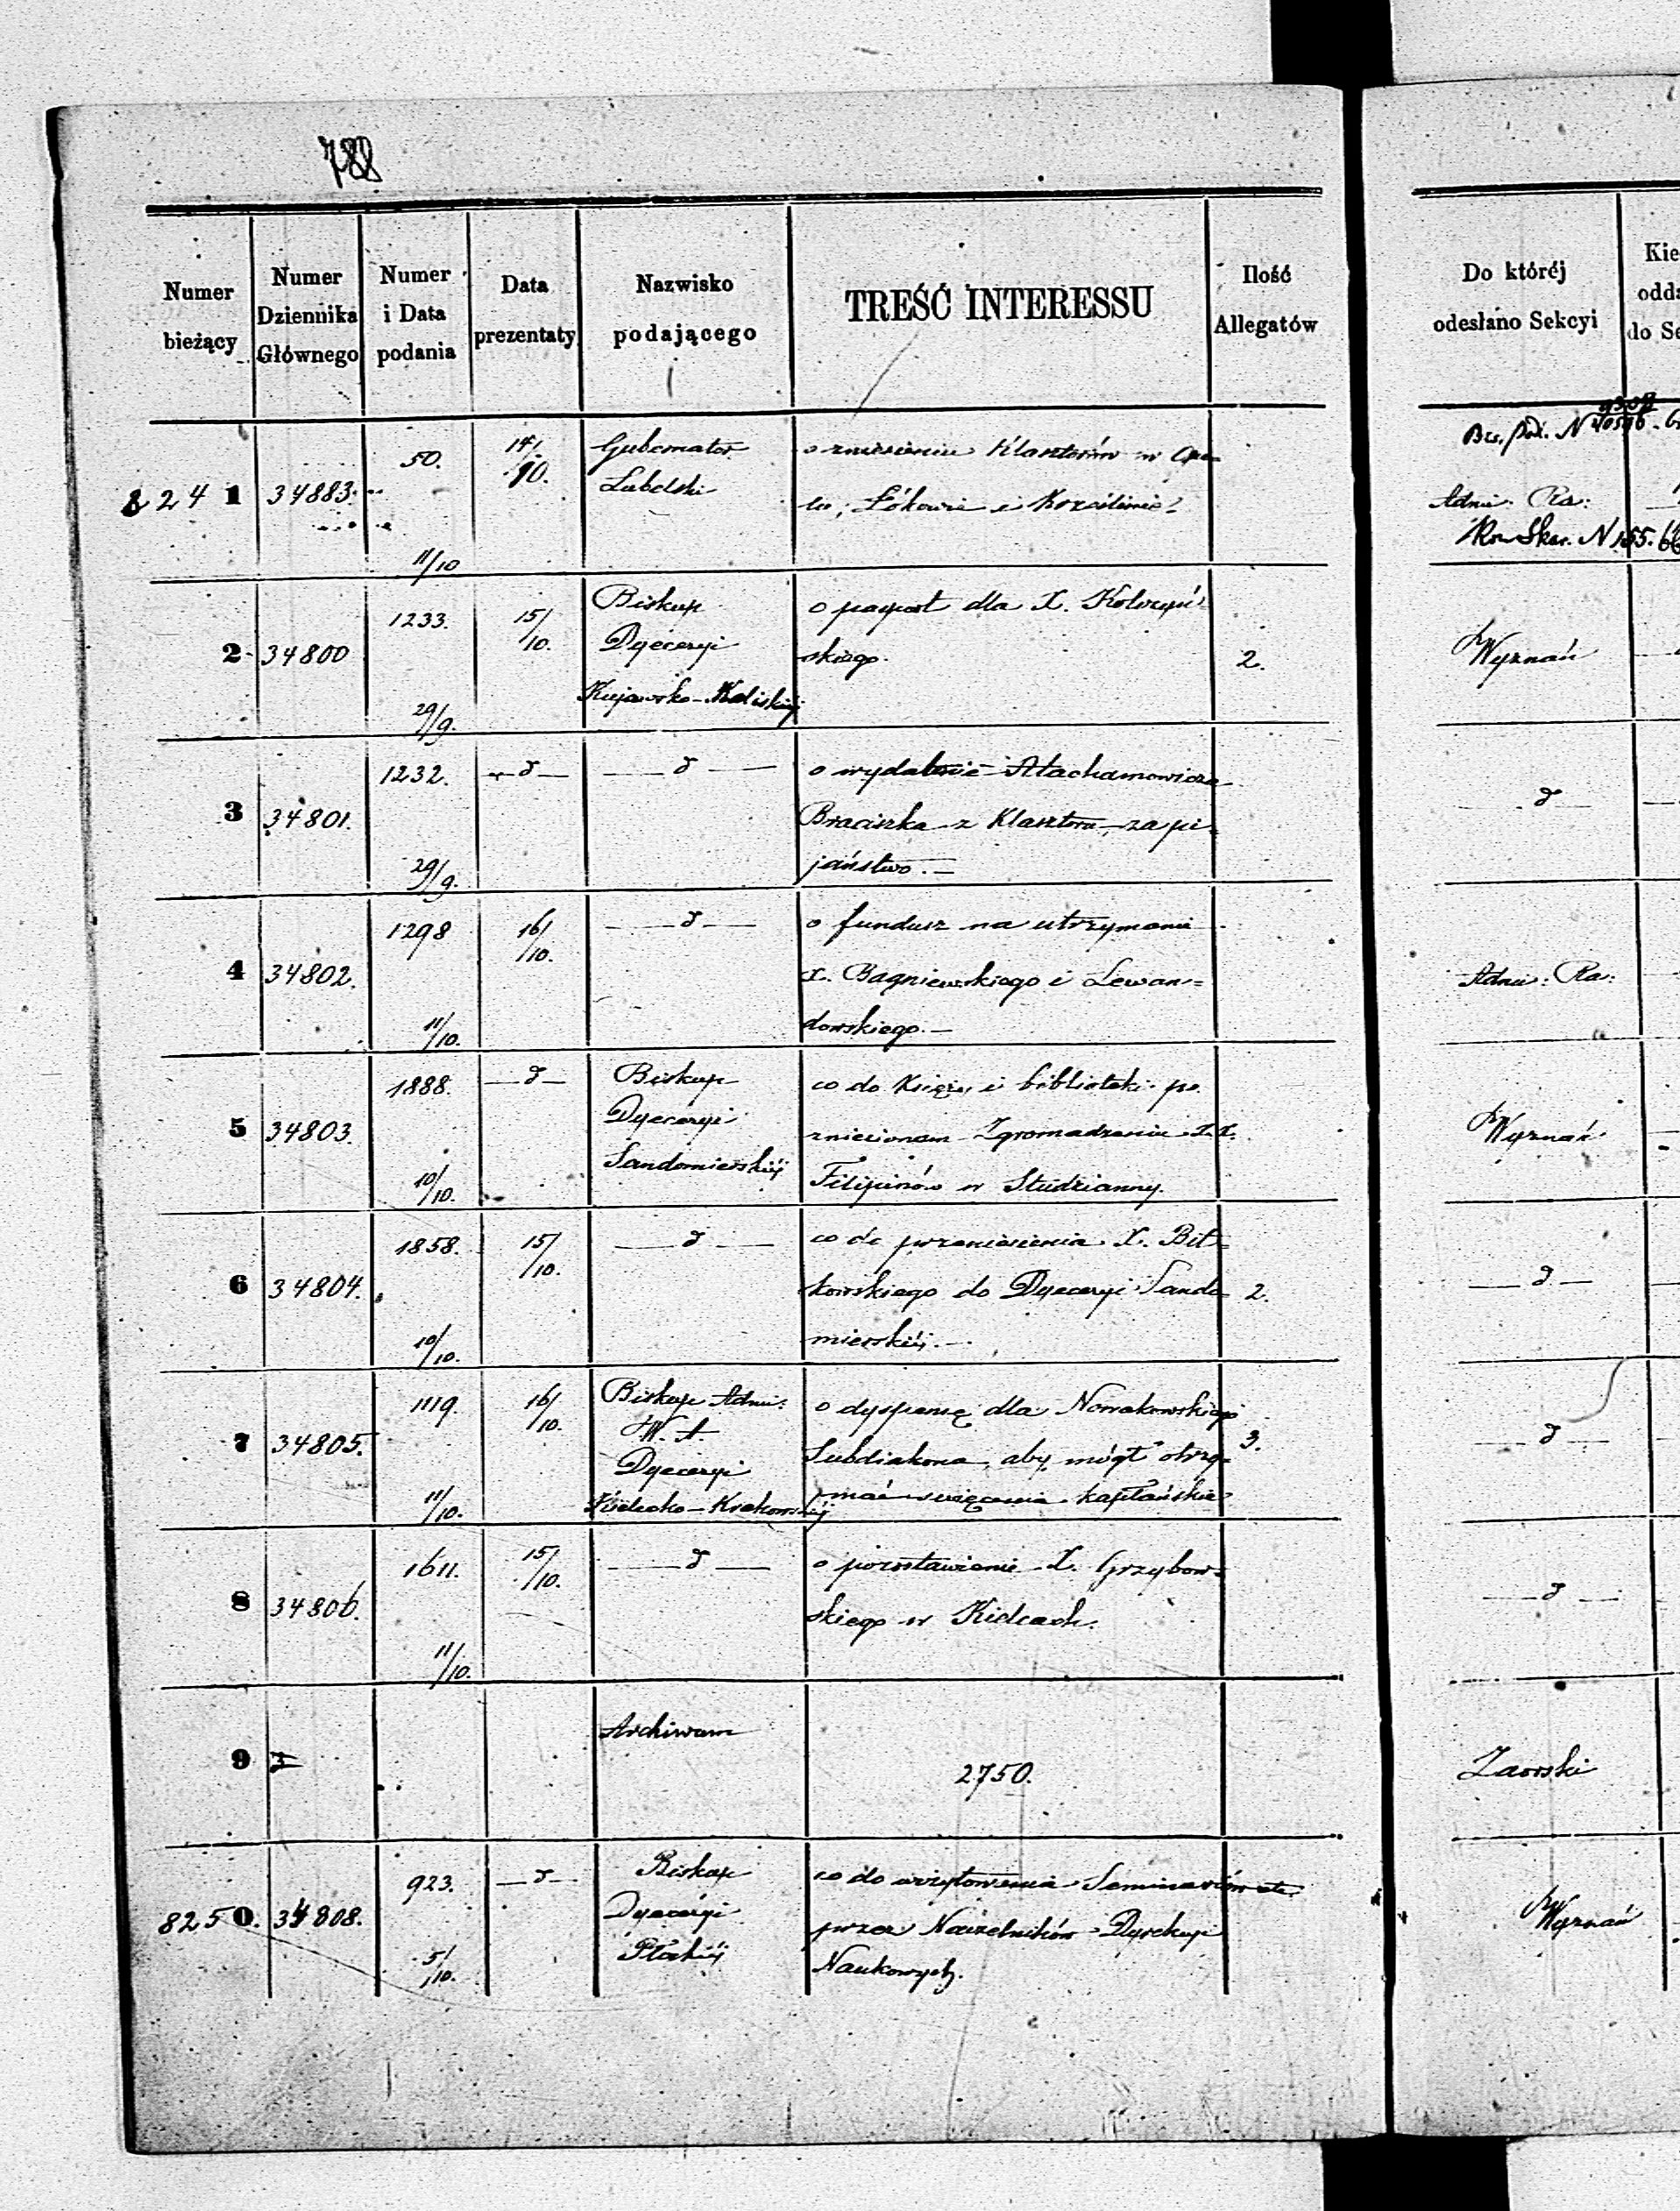 788
Numer bieżący
Numer Dziennika Głównego
Numer i Data podania
Data prezentaty
Nazwisko podającego
TREŚĆ INTERESSU
Ilość Allegatów
Do któréj odesłano Sekcyi
8241 34883. 50. 11/10 14/10. Gubernator Lubelski
o zniesieniu Klasztorów w Opo=
lu, Łukowie i
Adm: Ra:
2 34800 1233. 29/9. 15/10. Biskup Dyecezyi Kujawsko-Kaliskiéj
o paszport dla X.
skiego. 2.
Wyznań
3 34801. 1232. 29/9. —d— —d—
o wydalenie
Braciszka z Klasztoru, za pi=
jaństwo.—
—d—
4 34802. 1298 11/10. 16/10. —d—
o fundusz na utrzymanie
X. Bagniewskiego i Lewan=
dowskiego.—
Adm: Ra:
5 34803. 1888. 10/10. —d— Biskup Dyecezyi Sandomierskiéj
co do Księży i biblioteki po
zniesionem Zgromadzeniu X.X.
Filipinów w Studzianny.
Wyznań
6 34804. 1858. 10/10. 15/10. —d—
co do przeniesienia X. Bit=
kowskiego do Dyecezyi Sando=
mierskiéj.— 2.
—d—
7 34805. 1119. 11/10. 16/10. Biskup Adm: W. A. Dyecezyi Kielecko-Krakowskiéj
o dyspensę dla Nowakowskiego
Subdiakona, aby mógł otrzy=
mać święcenia kapłańskie 3.
—d—
8 34806. 1611. 11/10. 15/10. —d—
o pozostawienie X. Grzybow=
skiego w Kielcach.
—d—
9 Archiwum
2750.
Zaorski
8250. 34808. 923. 5/10. —d— Biskup Dyecezyi Płockiéj
co do wizytowania Seminariów
przez Naczelników Dyrekcyi
Naukowych.
Wyznań